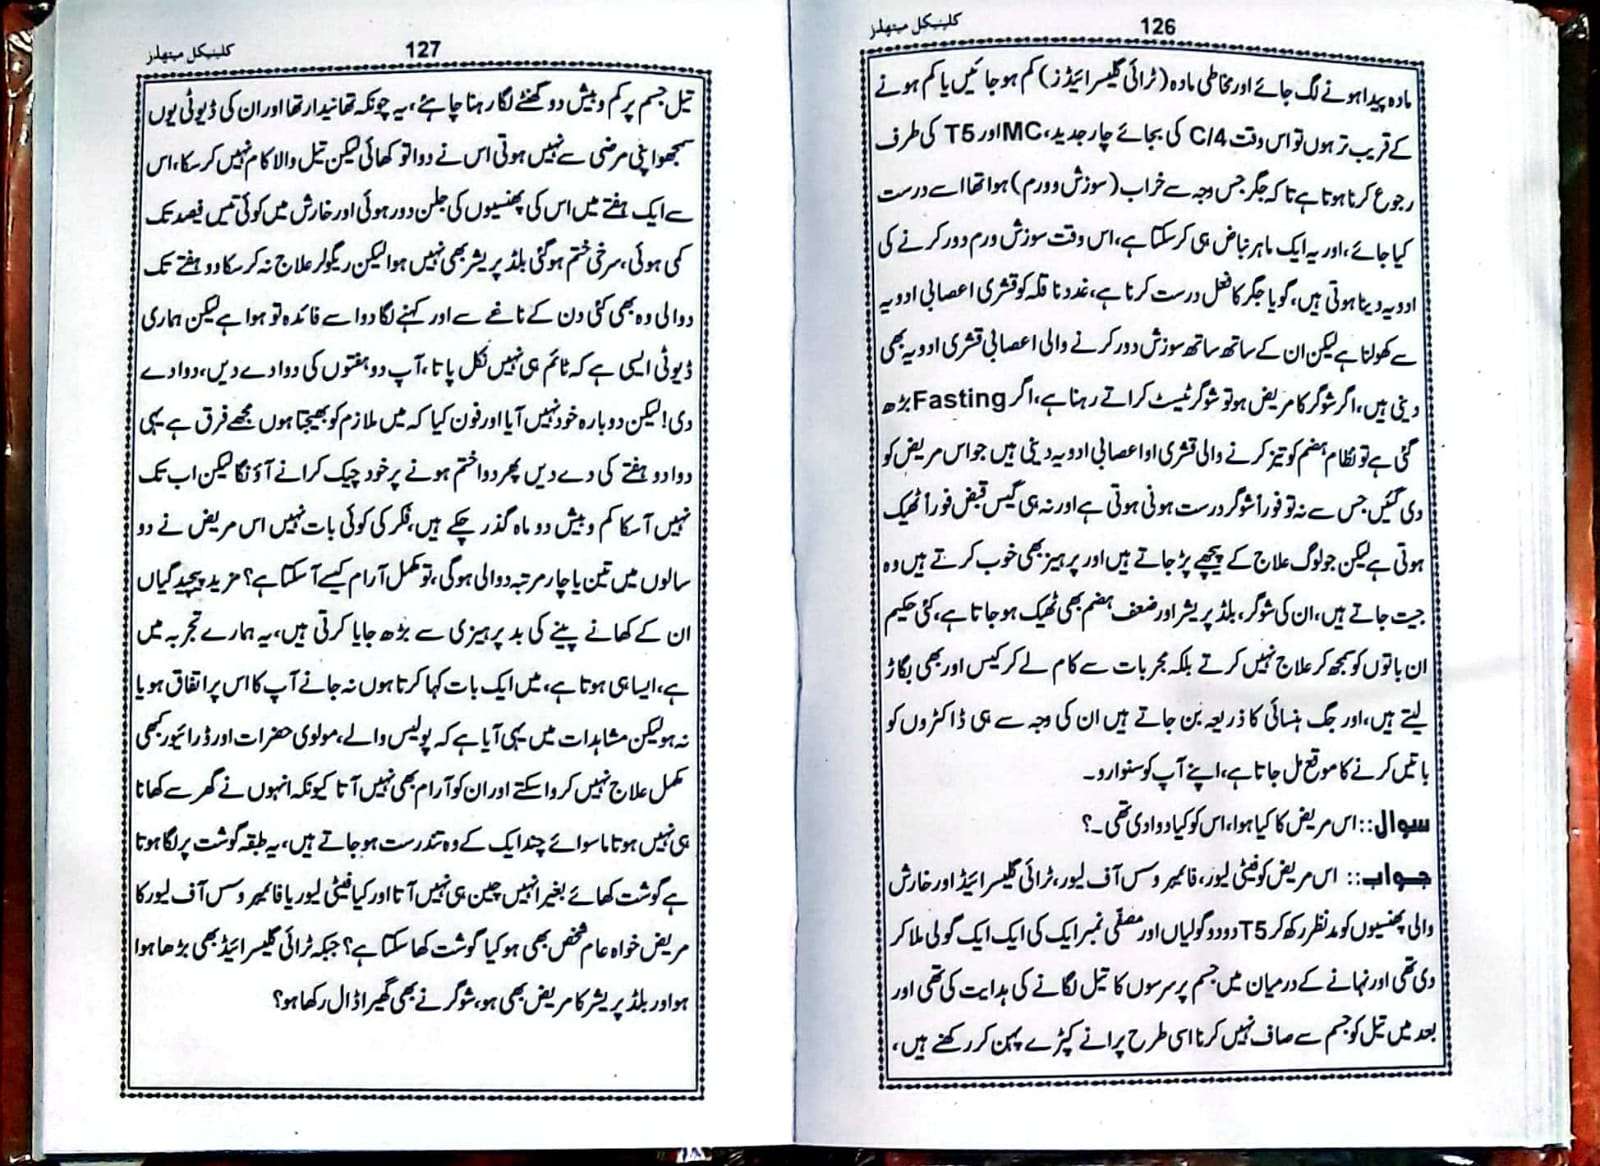 126
کلینیکل میتھلز
مادہ پیدا ہونے لگ جائے اور مخاطی مادہ (ٹرائی گلیسرائیڈز) کم ہو جائیں یا کم ہونے
کے قریب تر ہوں تو اس وقت C/4 کی بجائے چار جدید، MC اور T5 کی طرف
رجوع کرنا ہوتا ہے تاکہ جگر جس وجہ سے خراب (سوزش و ورم) ہوا تھا اسے درست
کیا جائے، اور یہ ایک ماہر نباض ہی کر سکتا ہے، اس وقت سوزش ورم دور کرنے کی
ادویہ دینا ہوتی ہیں، گویا جگر کا فعل درست کرنا ہے، غدد ناقلہ کو قشری اعصابی ادویہ
سے کھولنا ہے لیکن ان کے ساتھ ساتھ سوزش دور کرنے والی اعصابی قشری ادویہ بھی
دینی ہیں، اگر شوگر کا مریض ہو تو شوگر ٹیسٹ کراتے رہنا ہے، اگر Fasting بڑھ
گئی ہے تو نظام ہضم کو تیز کرنے والی قشری او اعصابی ادویہ دینی ہیں جو اس مریض کو
دی گئیں جس سے نہ تو فوراً شوگر درست ہونی ہوتی ہے اور نہ ہی گیس قبض فوراً ٹھیک
ہوتی ہے لیکن جو لوگ علاج کے پیچھے پڑ جاتے ہیں اور پرہیز بھی خوب کرتے ہیں وہ
جیت جاتے ہیں، ان کی شوگر، بلڈ پریشر اور ضعف ہضم بھی ٹھیک ہو جاتا ہے، کئی حکیم
ان باتوں کو سمجھ کر علاج نہیں کرتے بلکہ مجربات سے کام لے کر کیس اور بھی بگاڑ
لیتے ہیں، اور جگ ہنسائی کا ذریعہ بن جاتے ہیں ان کی وجہ سے ہی ڈاکٹروں کو
باتیں کرنے کا موقع مل جاتا ہے، اپنے آپ کو سنوارو۔
سوال:: اس مریض کا کیا ہوا، اس کو کیا دوا دی تھی۔؟
جواب:: اس مریض کو فیٹی لیور، فائبروسس آف لیور، ٹرائی گلیسرائیڈ اور خارش
والی پھنسیوں کو مدنظر رکھ کر T5 دو دو گولیاں اور مصفّی نمبر ایک کی ایک ایک گولی ملا کر
دی تھی اور نہانے کے درمیان میں جسم پر سرسوں کا تیل لگانے کی ہدایت کی تھی اور
بعد میں تیل کو جسم سے صاف نہیں کرنا اسی طرح پرانے کپڑے پہن کر رکھنے ہیں،
127
کلینیکل میتھلز
تیل جسم پر کم و بیش دو گھنٹے لگا رہنا چاہئے، یہ چونکہ تھانیدار تھا اور ان کی ڈیوٹی یوں
سمجھو اپنی مرضی سے نہیں ہوتی اس نے دوا تو کھائی لیکن تیل والا کام نہیں کر سکا، اس
سے ایک ہفتے میں اس کی پھنسیوں کی جلن دور ہوئی اور خارش میں کوئی تیس فیصد تک
کمی ہوئی، سرخی ختم ہو گئی بلڈ پریشر بھی نہیں ہوا لیکن ریگولر علاج نہ کر سکا دو ہفتے تک
دوا لی وہ بھی کئی دن کے ناغے سے اور کہنے لگا دوا سے فائدہ تو ہوا ہے لیکن ہماری
ڈیوٹی ایسی ہے کہ ٹائم ہی نہیں نکل پاتا، آپ دو ہفتوں کی دوا دے دیں، دوا دے
دی! لیکن دوبارہ خود نہیں آیا اور فون کیا کہ میں ملازم کو بھیجتا ہوں مجھے فرق ہے یہی
دوا دو ہفتے کی دے دیں پھر دوا ختم ہونے پر خود چیک کرانے آؤنگا لیکن اب تک
نہیں آ سکا کم و بیش دو ماہ گذر چکے ہیں، فکر کی کوئی بات نہیں اس مریض نے دو
سالوں میں تین یا چار مرتبہ دوا لی ہوگی، تو مکمل آرام کیسے آ سکتا ہے؟ مزید پیچیدگیاں
ان کے کھانے پینے کی بد پرہیزی سے بڑھ جایا کرتی ہیں، یہ ہمارے تجربہ میں
ہے، ایسا ہی ہوتا ہے، میں ایک بات کہا کرتا ہوں نہ جانے آپ کا اس پر اتفاق ہو یا
نہ ہو لیکن مشاہدات میں یہی آیا ہے کہ پولیس والے، مولوی حضرات اور ڈرائیور کبھی
مکمل علاج نہیں کروا سکتے اور ان کو آرام بھی نہیں آتا کیونکہ انہوں نے گھر سے کھانا
ہی نہیں ہوتا ماسوائے چند ایک کے وہ تندرست ہو جاتے ہیں، یہ طبقہ گوشت پر لگا ہوتا
ہے گوشت کھائے بغیر انہیں چین ہی نہیں آتا اور کیا فیٹی لیور یا فائبروسس آف لیور کا
مریض خواہ عام شخص بھی ہو کیا گوشت کھا سکتا ہے؟ جبکہ ٹرائی گلیسرائیڈ بھی بڑھا ہوا
ہو اور بلڈ پریشر کا مریض بھی ہو، شوگر نے بھی گھیرا ڈال رکھا ہو؟